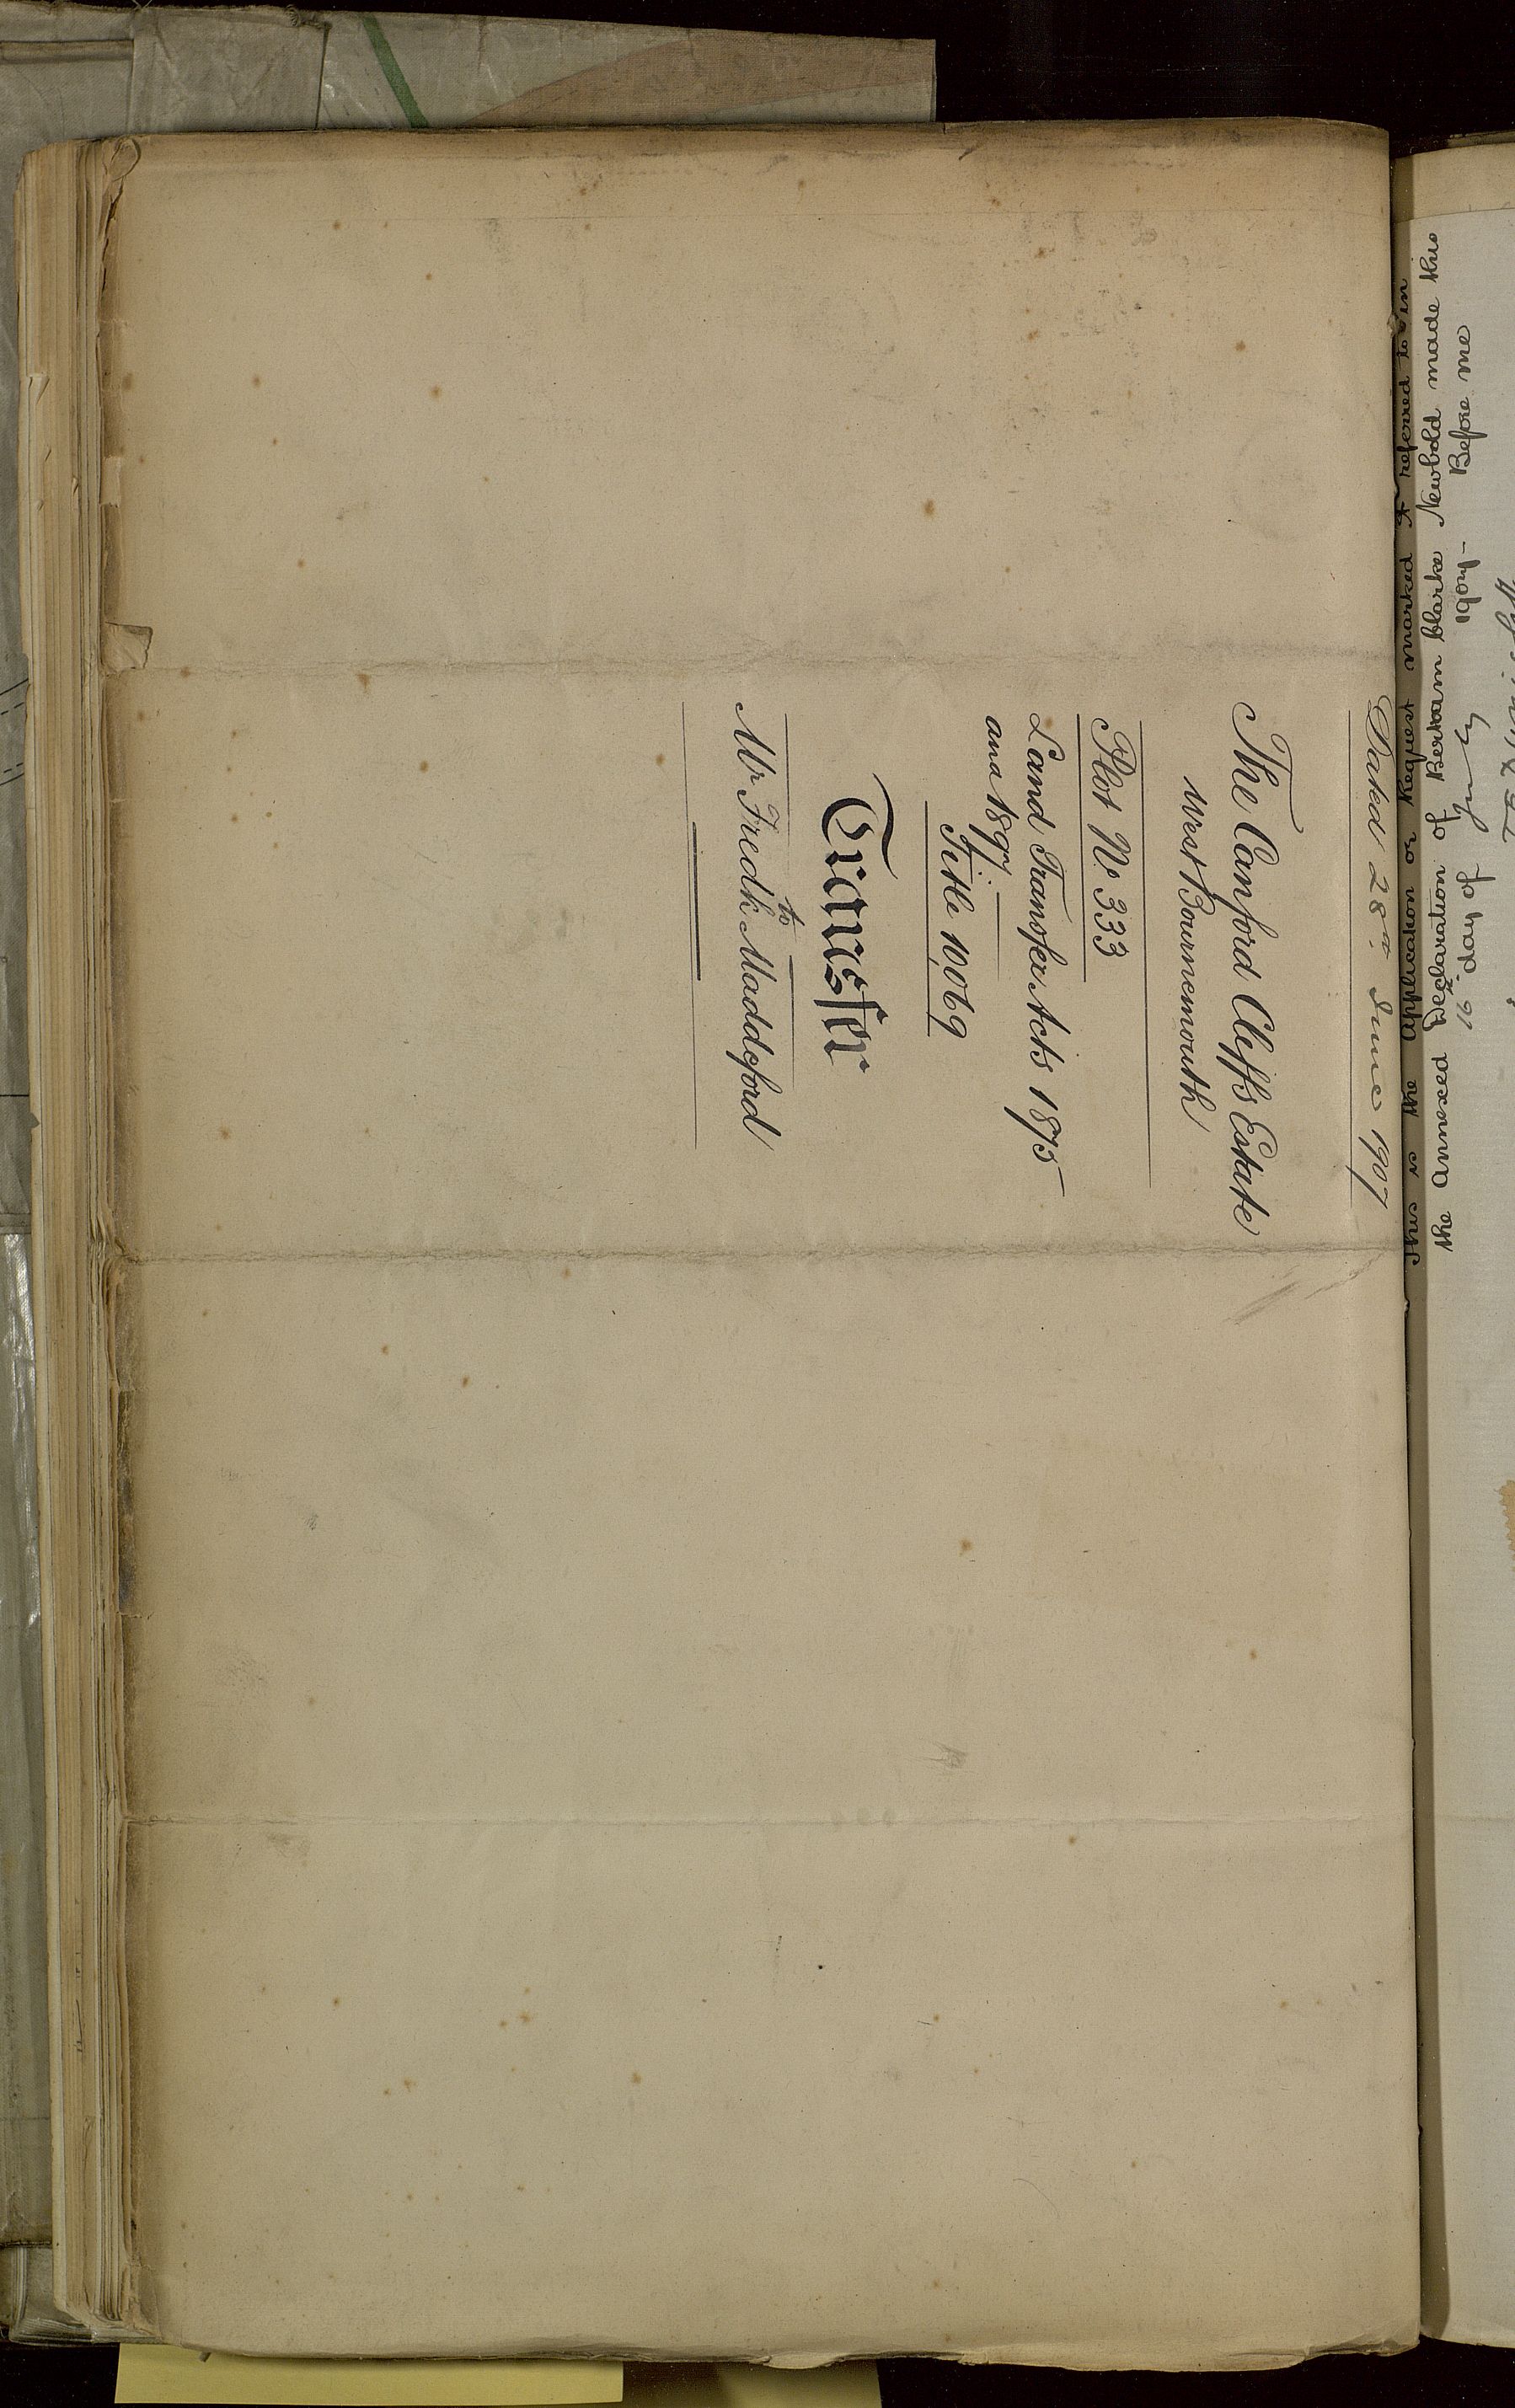 Dated 28th June 1907
The Canford Cliffs Estate
West Bournemouth
Plot No 333
Land Transfer Acts 1875
and 1897.
Title 10069
Transfer
to
Mr Fredk Maddeford
This is the Application or Request marked A referred to in
the Annexed Declaration of Bertram Clarke Newbold made this
16th day of July 1907 - Before me